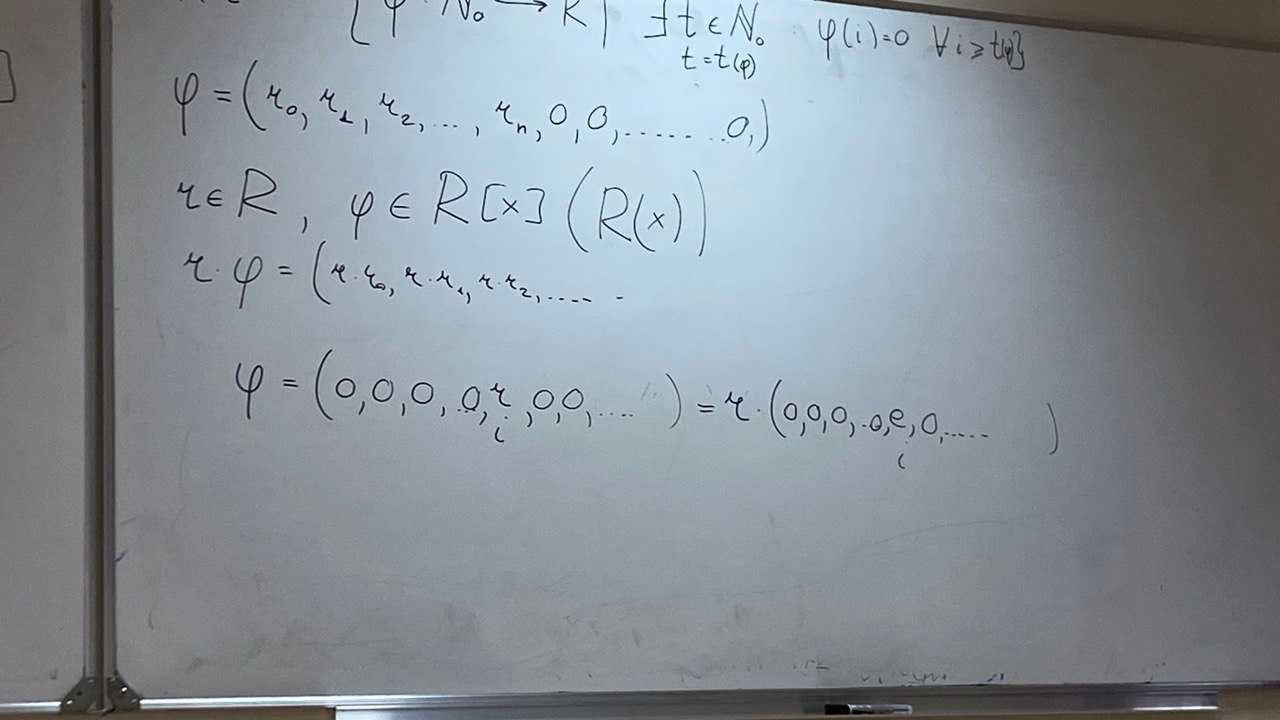 {φ : N₀ → R | ∃ t ∈ N₀ φ(i)=0 ∀ i ≥ t(φ)}
t = t(φ)
φ = (r₀, r₁, r₂, ..., rₙ, 0, 0, ........ 0,)
r ∈ R, φ ∈ R[x] (R(x))
r·φ = (r·r₀, r·r₁, r·r₂, ..... .
φ = (0,0,0,..0,r,0,0,.... ) = r·(0,0,0,..0,e,0,..... )
i i